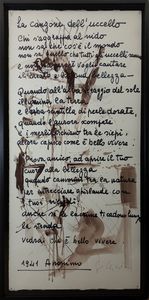 La canzone dell'uccello
Chi s'aggrappa al nido
non sa che cos'è il mondo
non sa quello che tutti gli uccelli sanno
e non sa perché voglia cantare
il creato e la sua bellezza
Quando all'alba il raggio del sole
illumina la terra
e l'erba scintilla di perle dorate
quando l'aurora scompare
e i merli fischiano tra le siepi
allora capisco come è bello vivere
Prova, amico, ad aprire il tuo
cuore alla bellezza
quando cammini tra la natura
per intrecciare ghirlande con
i tuoi ricordi
anche se le lacrime ti cadono lungo
la strada
vedrai che è bello vivere
1941 Anonimo